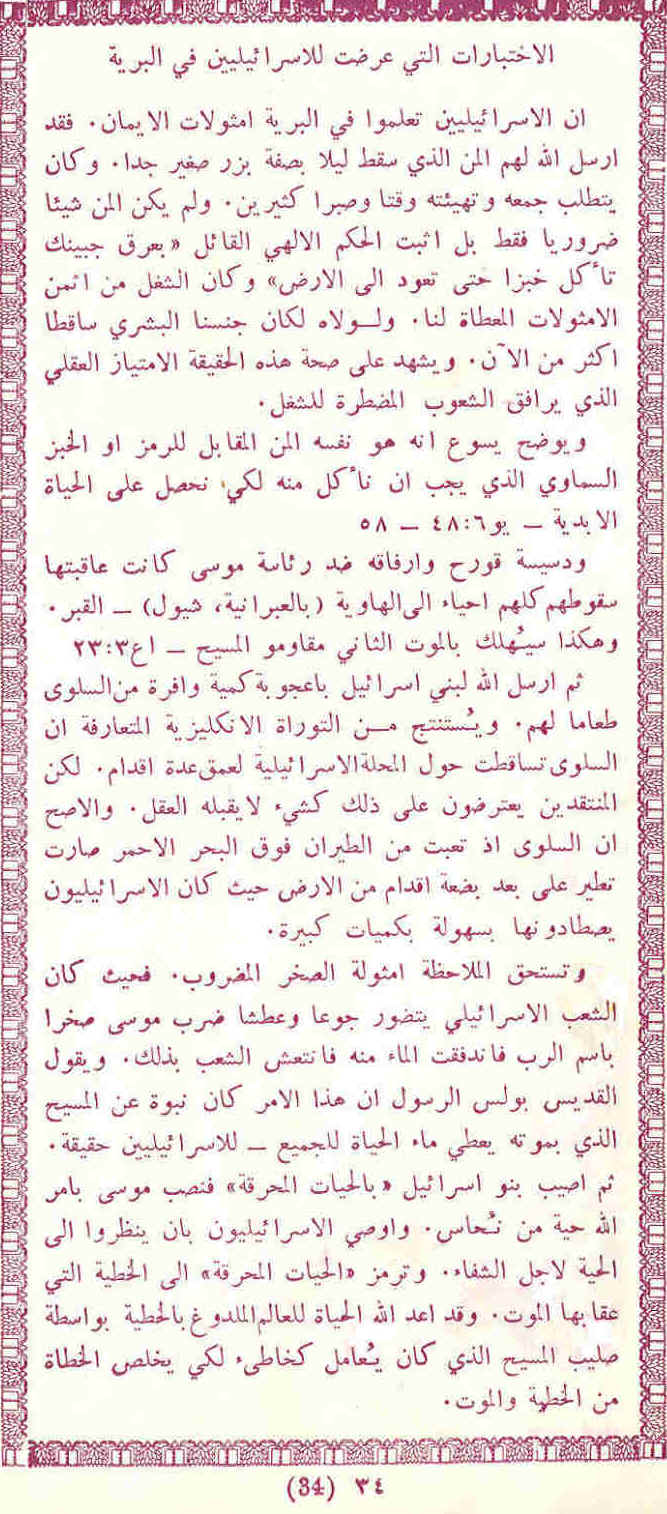 الاختبارات التي عرضت للاسرائيليين في البرية
ان الاسرائيليين تعلموا في البرية امثولات الايمان. فقد
ارسل الله لهم المن الذي سقط ليلا بصفة بزر صغير جدا. وكان
يتطلب جمعه وتهيئته وقتا وصبرا كثيرين. ولم يكن المن شيئا
ضروريا فقط بل اثبت الحكم الالهي القائل «بعرق جبينك
تأكل خبزا حتى تعود الى الارض» وكان الشغل من اثمن
الامثولات المعطاة لنا. ولــولاه لكان جنسنا البشري ساقطا
اكثر من الآن. ويشهد على صحة هذه الحقيقة الامتياز العقلي
الذي يرافق الشعوب المضطرة للشغل.
ويوضح يسوع انه هو نفسه المن المقابل للرمز او الخبز
السماوي الذي يجب ان نأكل منه لكي نحصل على الحياة
الابدية – يو٦:٤٨ – ٥٨
ودسيسة قورح وارفاقه ضد رئاسة موسى كانت عاقبتها
سقوطهم كلهم احياء الى الهاوية (بالعبرانية، شيول) – القبر.
وهكذا سيُهلك بالموت الثاني مقاومو المسيح – اع٣:٢٣
ثم ارسل الله لبني اسرائيل باعجوبة كمية وافرة من السلوى
طعاما لهم. ويُستنتج مــن التوراة الانكليزية المتعارفة ان
السلوى تساقطت حول المحلة الاسرائيلية لعمق عدة اقدام. لكن
المنتقدين يعترضون على ذلك كشيء لايقبله العقل. والاصح
ان السلوى اذ تعبت من الطيران فوق البحر الاحمر صارت
تطير على بعد بضعة اقدام من الارض حيث كان الاسرائيليون
يصطادونها بسهولة بكميات كبيرة.
وتستحق الملاحظة امثولة الصخر المضروب. فحيث كان
الشعب الاسرائيلي يتضور جوعا وعطشا ضرب موسى صخرا
باسم الرب فاندفقت الماء منه فانتعش الشعب بذلك. ويقول
القديس بولس الرسول ان هذا الامر كان نبوة عن المسيح
الذي بموته يعطي ماء الحياة للجميع – للاسرائيليين حقيقة.
ثم اصيب بنو اسرائيل «بالحيات المحرقة» فنصب موسى بامر
الله حية من نُحاس. واوصي الاسرائيليون بان ينظروا الى
الحية لاجل الشفاء. وترمز «الحيات المحرقة» الى الخطية التي
عقابها الموت. وقد اعد الله الحياة للعالم الملدوغ بالخطية بواسطة
صليب المسيح الذي كان يُعامل كخاطىء لكي يخلص الخطاة
من الخطية والموت.
٣٤ (34)